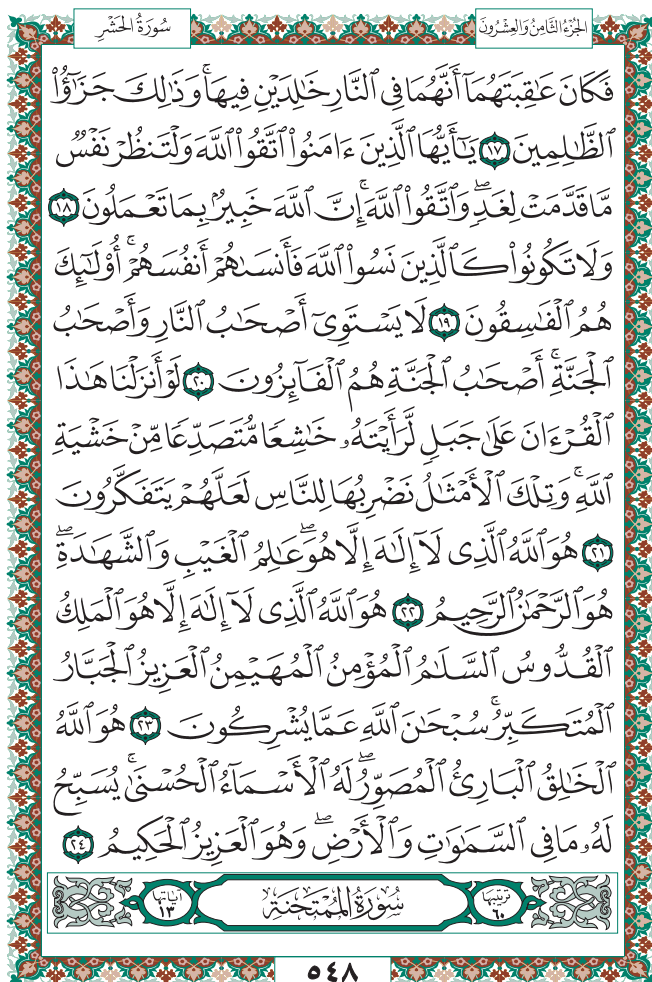 سُورَةُ الحَشْرِ
الجُزْءُ الثَّامِنُ وَالعِشْرُونَ
فَكَانَ عَٰقِبَتَهُمَآ أَنَّهُمَا فِى ٱلنَّارِ خَٰلِدَيْنِ فِيهَاۚ وَذَٰلِكَ جَزَٰٓؤُا۟
ٱلظَّٰلِمِينَ ١٧ يَٰٓأَيُّهَا ٱلَّذِينَ ءَامَنُوا۟ ٱتَّقُوا۟ ٱللَّهَ وَلْتَنظُرْ نَفْسٌ
مَّا قَدَّمَتْ لِغَدٍۖ وَٱتَّقُوا۟ ٱللَّهَۚ إِنَّ ٱللَّهَ خَبِيرٌۢ بِمَا تَعْمَلُونَ ١٨
وَلَا تَكُونُوا۟ كَٱلَّذِينَ نَسُوا۟ ٱللَّهَ فَأَنسَىٰهُمْ أَنفُسَهُمْۚ أُو۟لَٰٓئِكَ
هُمُ ٱلْفَٰسِقُونَ ١٩ لَا يَسْتَوِىٓ أَصْحَٰبُ ٱلنَّارِ وَأَصْحَٰبُ
ٱلْجَنَّةِۚ أَصْحَٰبُ ٱلْجَنَّةِ هُمُ ٱلْفَآئِزُونَ ٢٠ لَوْ أَنزَلْنَا هَٰذَا
ٱلْقُرْءَانَ عَلَىٰ جَبَلٍ لَّرَأَيْتَهُۥ خَٰشِعًا مُّتَصَدِّعًا مِّنْ خَشْيَةِ
ٱللَّهِۚ وَتِلْكَ ٱلْأَمْثَٰلُ نَضْرِبُهَا لِلنَّاسِ لَعَلَّهُمْ يَتَفَكَّرُونَ
٢١ هُوَ ٱللَّهُ ٱلَّذِى لَآ إِلَٰهَ إِلَّا هُوَۖ عَٰلِمُ ٱلْغَيْبِ وَٱلشَّهَٰدَةِۖ
هُوَ ٱلرَّحْمَٰنُ ٱلرَّحِيمُ ٢٢ هُوَ ٱللَّهُ ٱلَّذِى لَآ إِلَٰهَ إِلَّا هُوَ ٱلْمَلِكُ
ٱلْقُدُّوسُ ٱلسَّلَٰمُ ٱلْمُؤْمِنُ ٱلْمُهَيْمِنُ ٱلْعَزِيزُ ٱلْجَبَّارُ
ٱلْمُتَكَبِّرُۚ سُبْحَٰنَ ٱللَّهِ عَمَّا يُشْرِكُونَ ٢٣ هُوَ ٱللَّهُ
ٱلْخَٰلِقُ ٱلْبَارِئُ ٱلْمُصَوِّرُۖ لَهُ ٱلْأَسْمَآءُ ٱلْحُسْنَىٰۚ يُسَبِّحُ
لَهُۥ مَا فِى ٱلسَّمَٰوَٰتِ وَٱلْأَرْضِۖ وَهُوَ ٱلْعَزِيزُ ٱلْحَكِيمُ ٢٤
ترتيبها ٦٠ سُورَةُ المُمْتَحنَةِ آياتها ١٣
٥٤٨